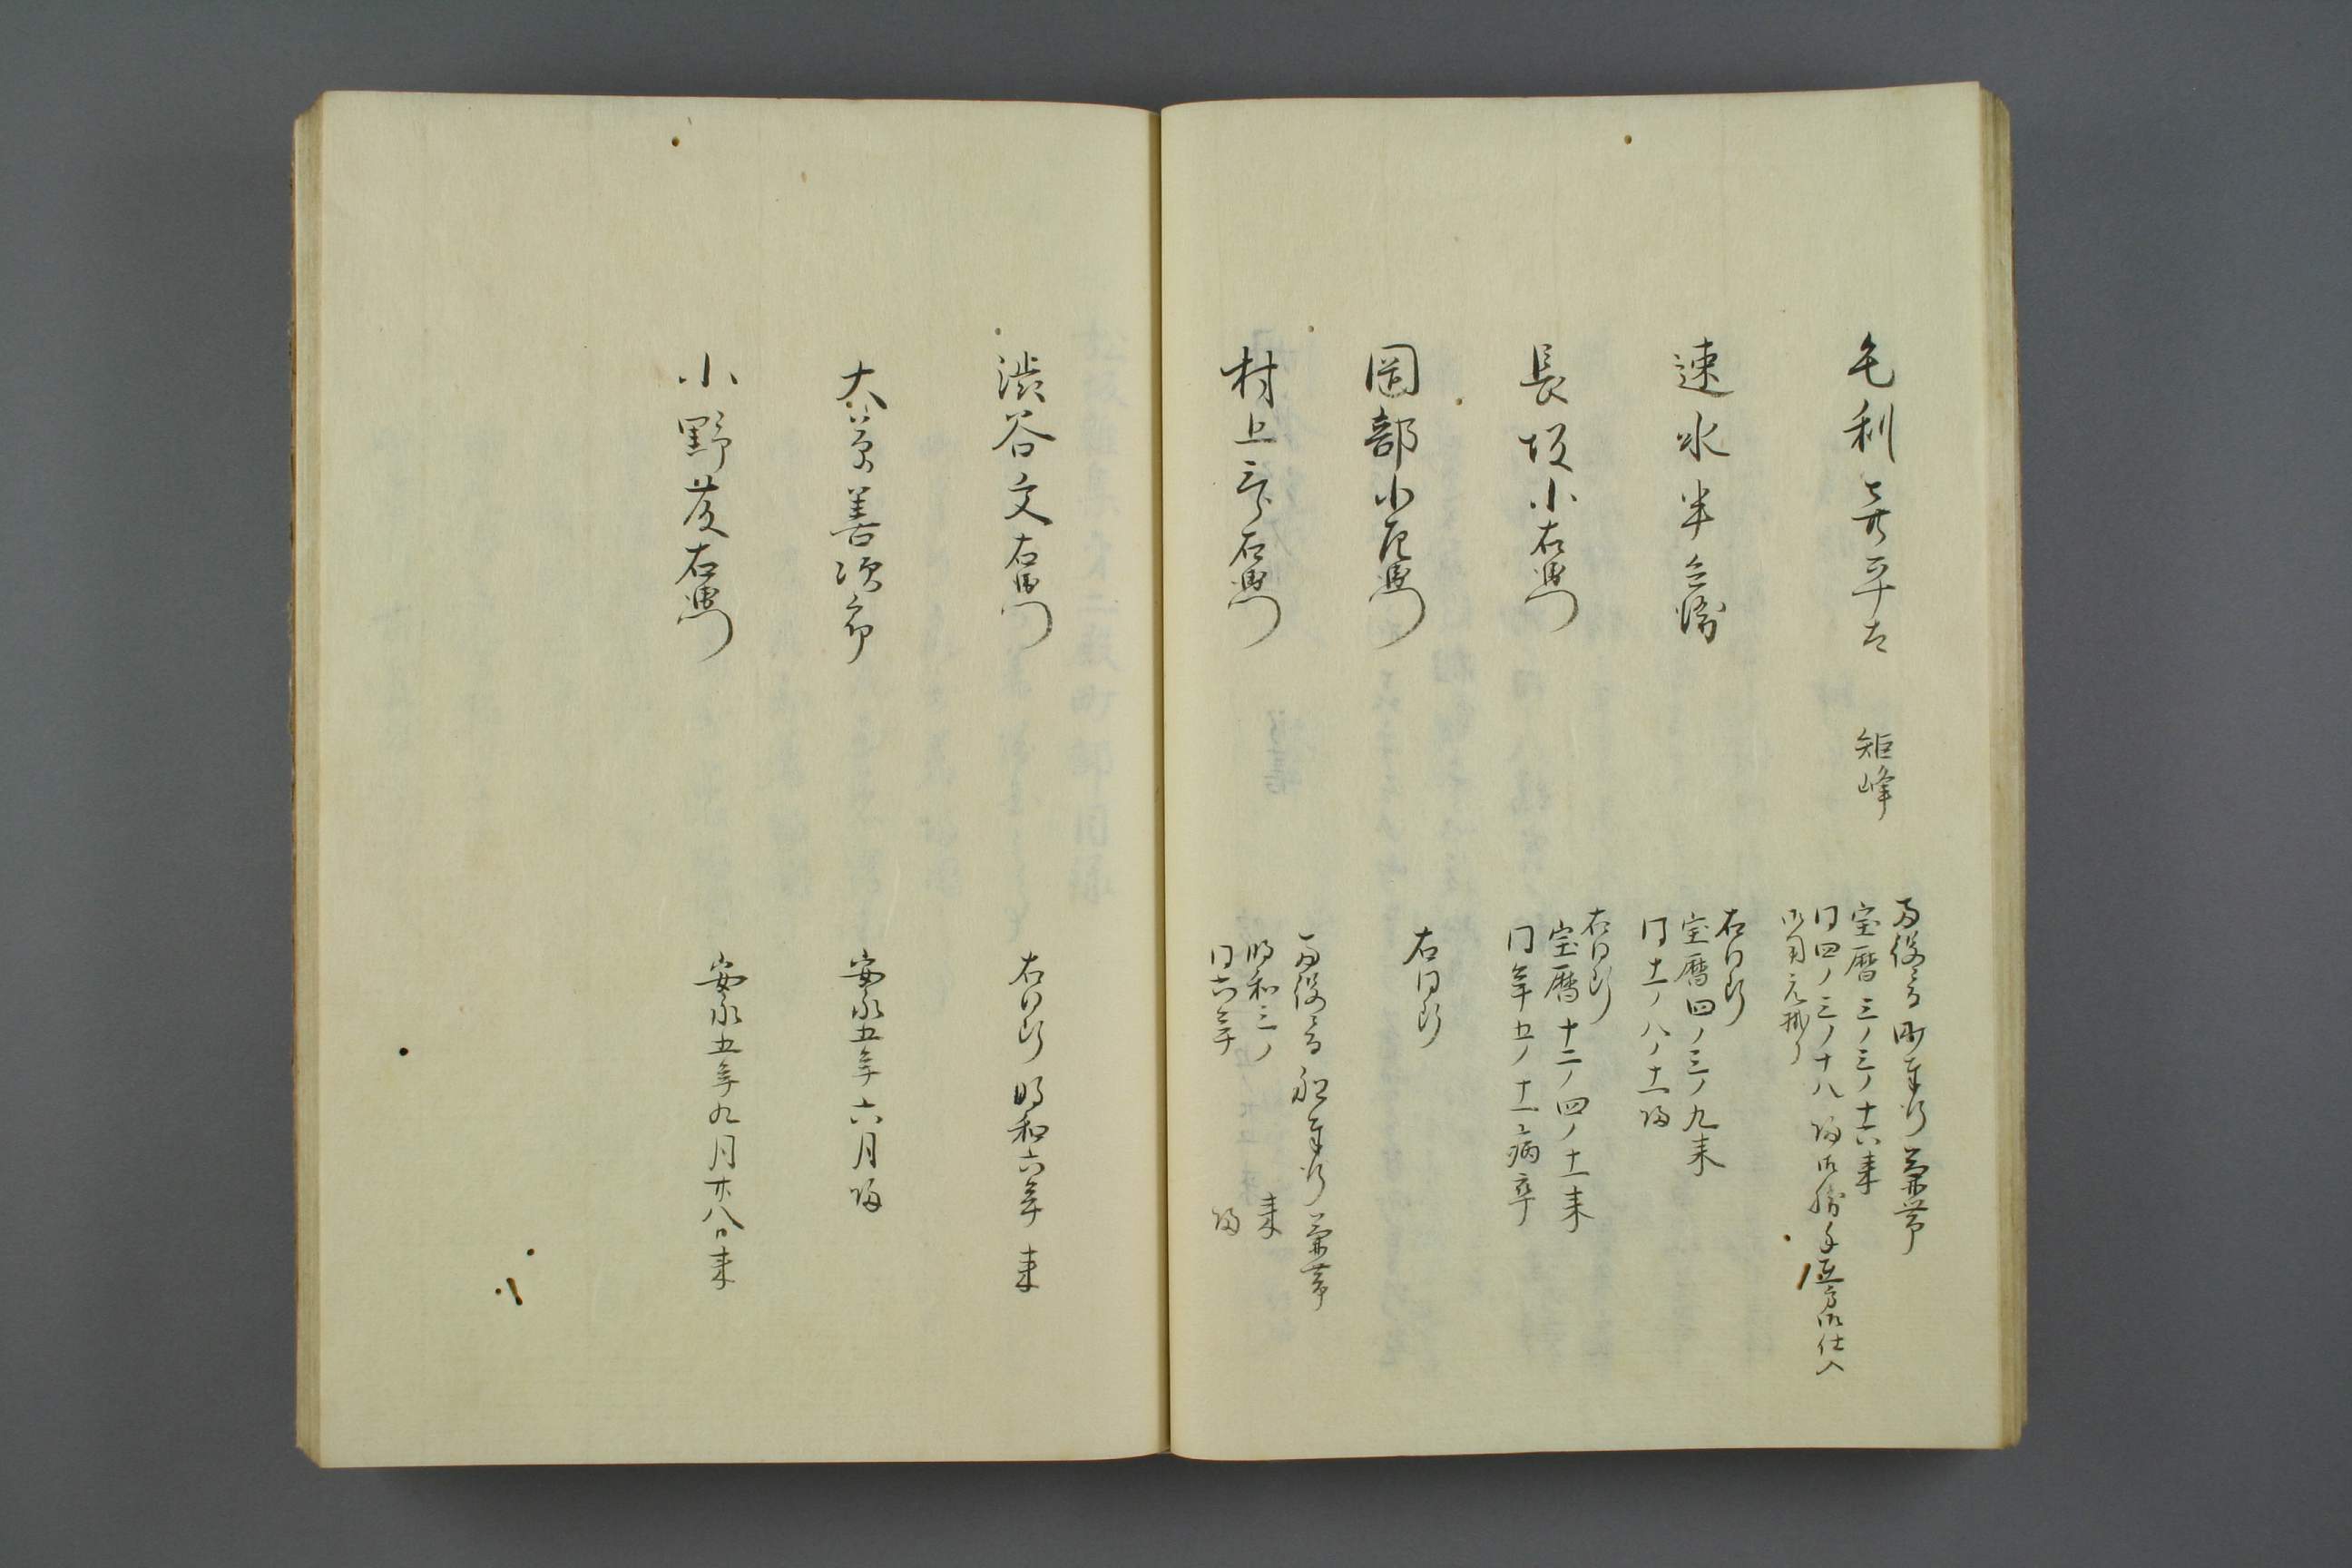 毛利喜平太 矩峰
両役所町奉行兼帯
宝暦三ノ三ノ十六来
同四ノ三ノ十八帰
御用元掛り
速水半兵衛
右同断
宝暦四ノ三ノ九来
同十一ノ八ノ十一帰
長坂小右衛門
右同断
宝暦十二ノ四ノ十一来
同年五ノ十一病卒
岡部小左衛門
右同断
村上三郎右衛門
両役所 奉行兼帯
明和三ノ 来
同六年 帰
渋谷文右衛門
右同断 明和六年 来
大
善次郎
安永五年六月帰
小野
右衛門
安永五年九月廿八日来